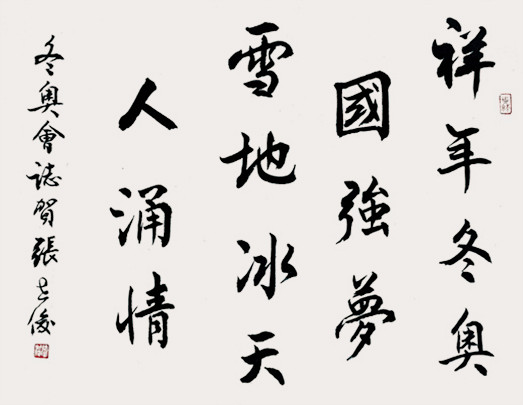 祥年冬奥
國強夢
雪地冰天
人涌情
冬奥會誌賀張志俊